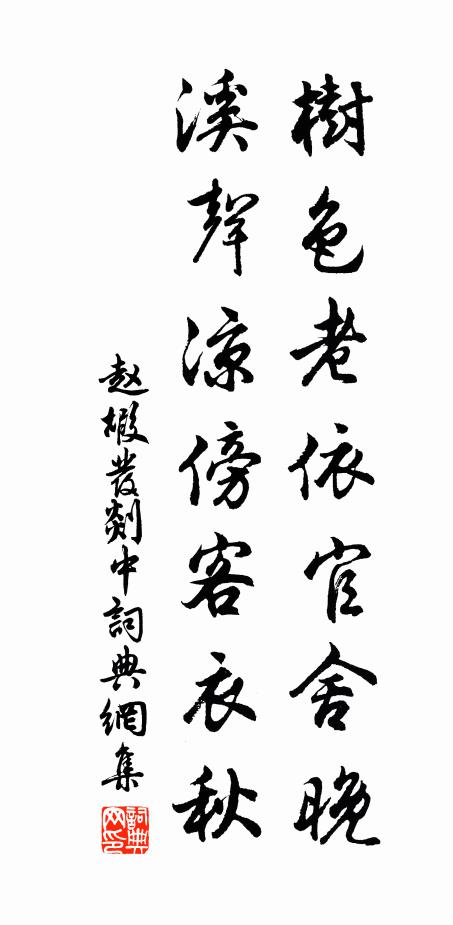 樹色老依官舍晚
溪聲涼傍客衣秋
赵嘏發剡中詞典網集
詞典网印